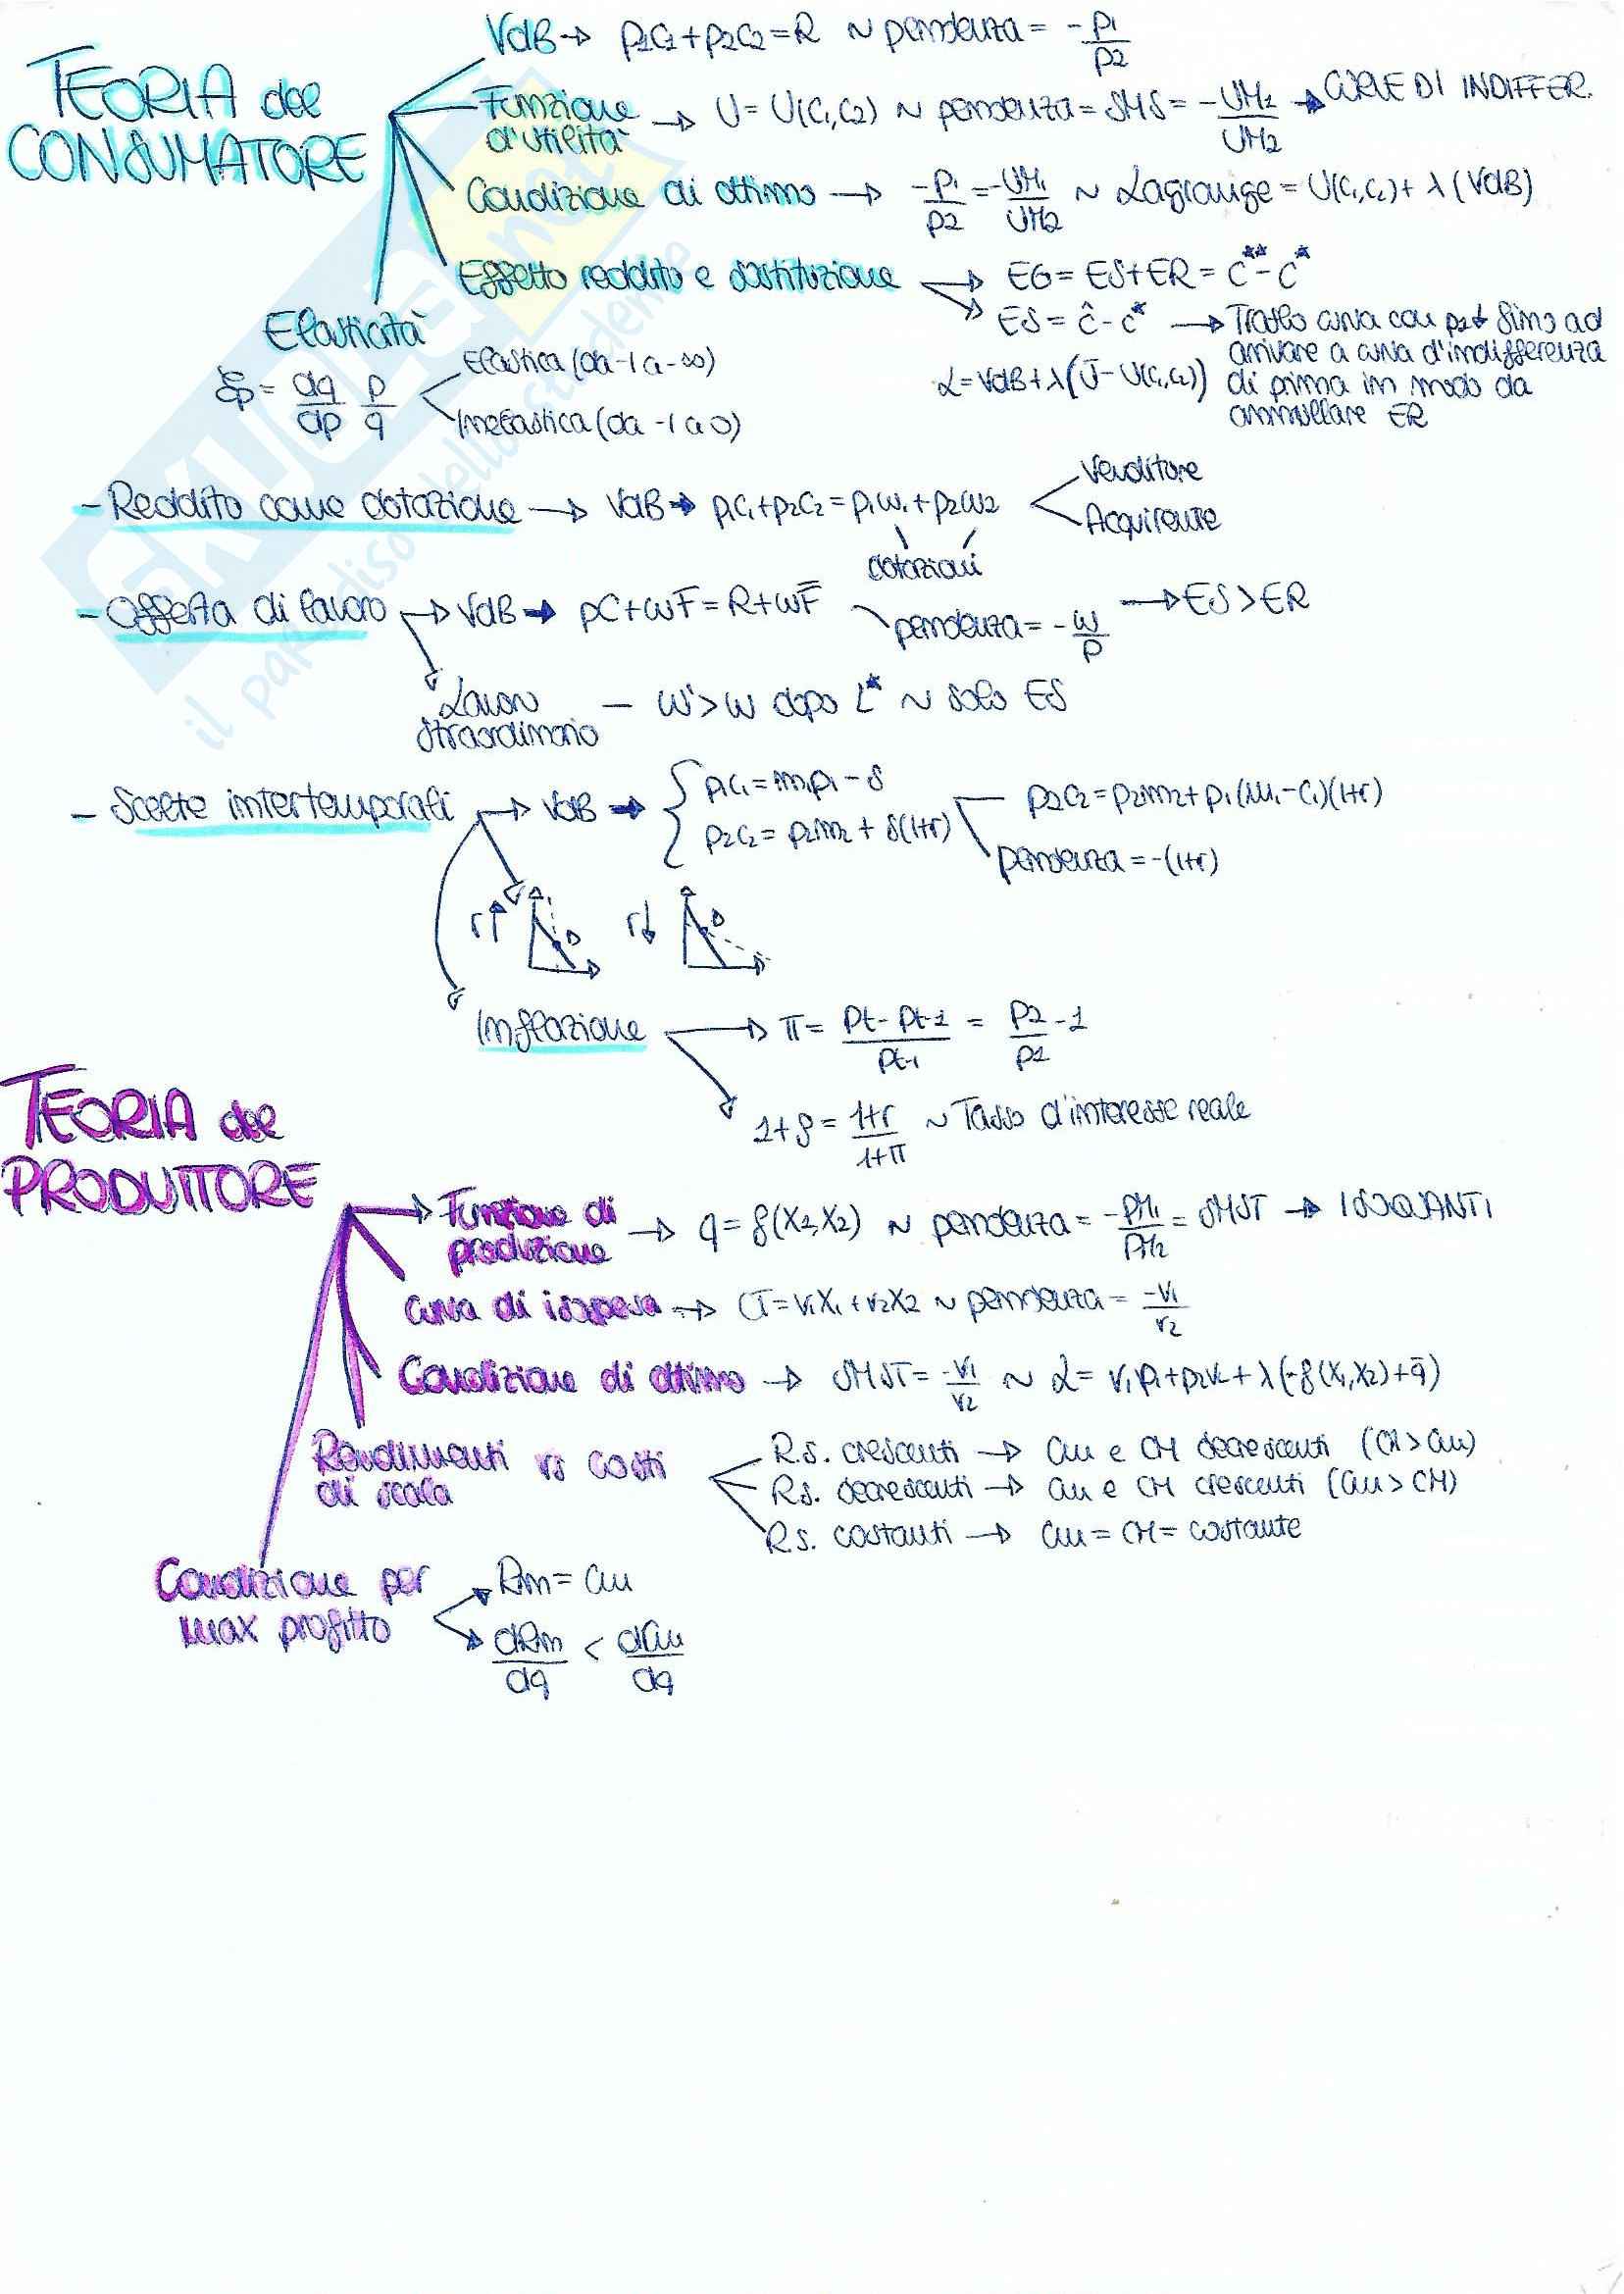 VdB → p1C1+p2C2=R ~ pendenza = -p1/p2
TEORIA del
CONSUMATORE
Funzione d'utilità → U= U(C1,C2) ~ pendenza = SMS = -UM1/UM2 → CURVE DI INDIFFER.
Condizione di ottimo → -p1/p2 = -UM1/UM2 ~ Lagrange = U(C1,C2)+ λ(VdB)
Effetto reddito e sostituzione → EG= ES+ER= C** - C*
ES= ĉ - c* → Traslo curva con p2↓ fino ad
arrivare a curva d'indifferenza
di prima in modo da
annullare ER
L=VdB+λ(Ū-U(C1,C2))
Elasticità
ξp= dq/dp p/q
Elastica (da -1 a -∞)
Inelastica (da -1 a 0)
- Reddito come dotazione → VdB → p1C1+p2C2=p1ω1+p2ω2
Venditore
Acquirente
dotazioni
- Offerta di lavoro → VdB → pC+wF=R+wF̄
pendenza= -w/p → ES>ER
Lavoro straordinario - w'>w dopo L* ~ solo ES
- Scelte intertemporali → VdB → { p1C1=m1p1-s
p2C2= p2m2+s(1+r)
p2C2=p2m2+p1(m1-C1)(1+r)
pendenza=-(1+r)
r↑ D r↓ D
Inflazione → π= pt-pt-1/pt-1 = p2/p1 -1
1+ρ= 1+r/1+π ~ Tasso d'interesse reale
TEORIA del
PRODUTTORE
Funzione di produzione → q= f(X1,X2) ~ pendenza= -PM1/PM2 = SMST → ISOQUANTI
curva di isospesa → CT=v1X1+v2X2 ~ pendenza= -v1/v2
Condizione di ottimo → SMST= -v1/v2 ~ L= v1p1+p2v2+λ(-f(X1,X2)+q̄)
Rendimenti vs costi di scala
R.s. crescenti → Cm e CM decrescenti (CM>Cm)
R.s. decrescenti → Cm e CM crescenti (Cm>CM)
R.s. costanti → Cm=CM= costante
Condizione per max profitto
Rm= Cm
dRm/dq < dCm/dq
SKUOLA.net
il paradiso dello studente